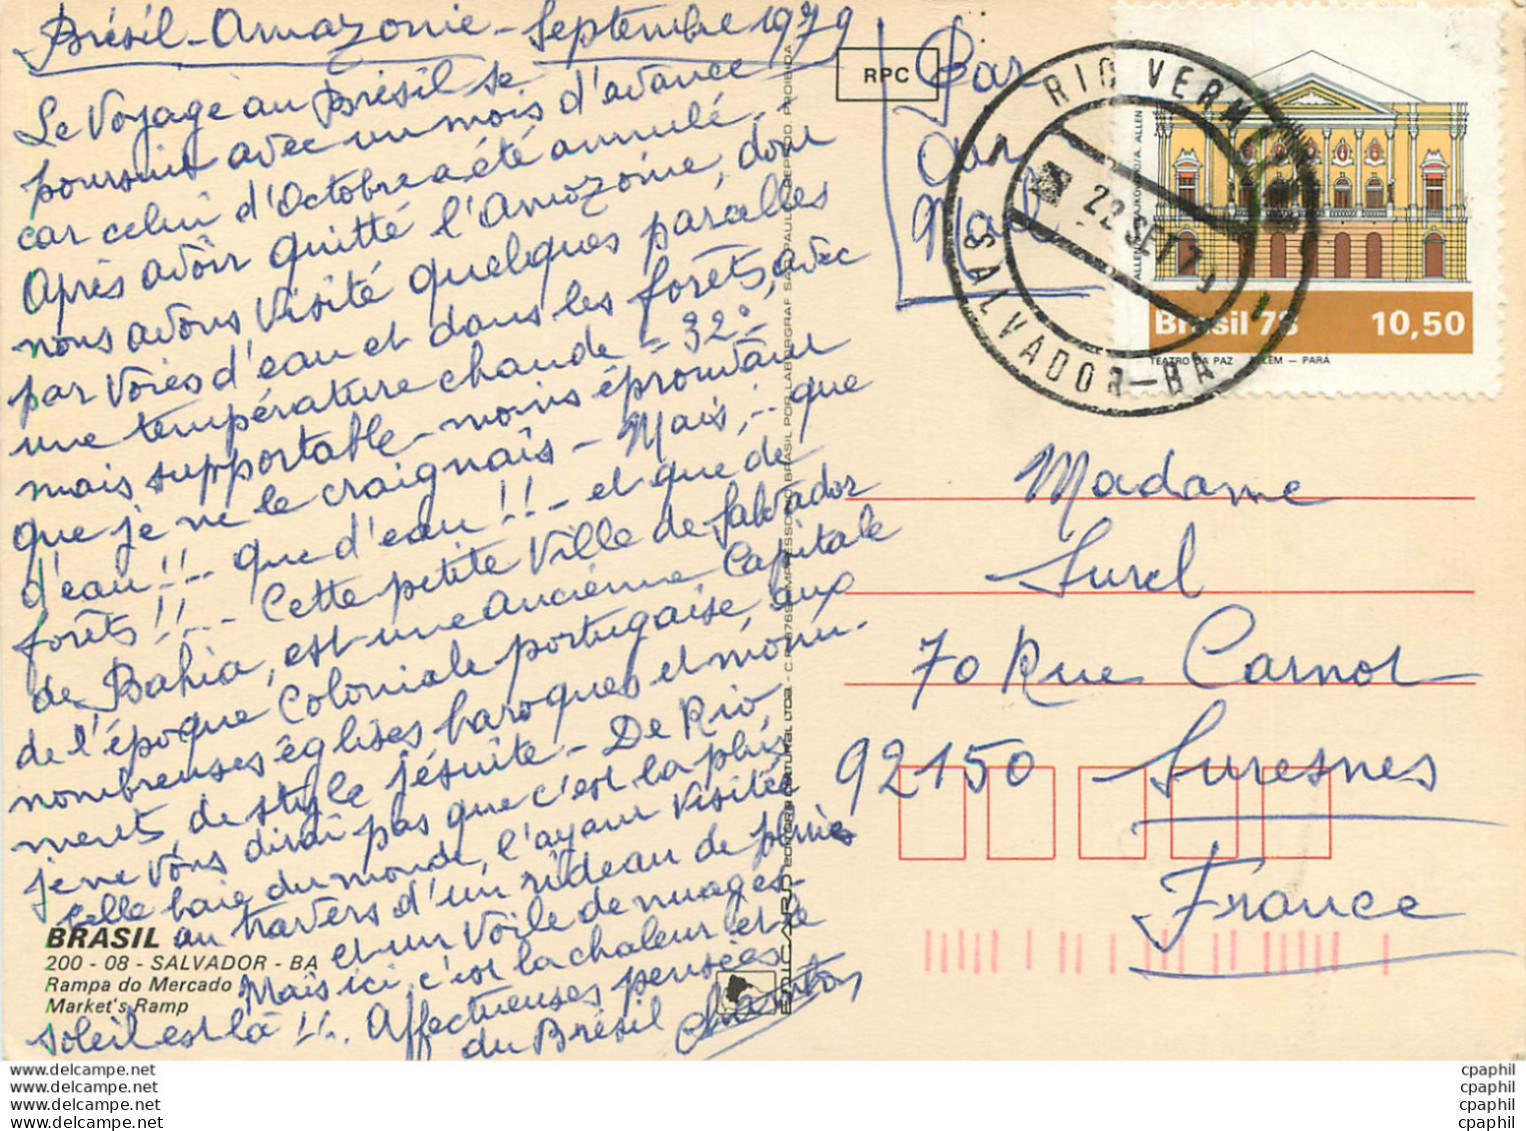 Brésil - Amazonie - Septembre 1979
Le Voyage au Brésil se
poursuit avec un mois d'avance
car celui d'Octobre a été annulé -
Après avoir quitté l'Amazonie, dont
nous avons visité quelques parcelles
par voies d'eau et dans les forêts, avec
une température chaude = 32° -
mais supportable - moins éprouvant
que je ne le craignais - Mais, - que
d'eau !! - que d'eau !! - et que de
forêts !! - Cette petite Ville de Salvador
de Bahia, est une ancienne Capitale
de l'époque Coloniale portugaise, aux
nombreuses églises baroques et monu-
ments, de style jésuite - De Rio,
je ne vous dirai pas que c'est la plus
belle baie du monde, l'ayant visitée
au travers d'un rideau de pluies
et un voile de nuages -
Mais ici c'est la chaleur et le
soleil est là !!. Affectueuses pensées
du Brésil
BRASIL
200 - 08 - SALVADOR - BA
Rampa do Mercado
Market's Ramp
RPC
Par
Air
Mail
RIO VERMELHO
22 SET 79
SALVADOR - BA
Brasil 78
10,50
TEATRO DA PAZ BELÉM — PARÁ
Madame
Surel
70 Rue Carnot
92150 Suresnes
France
www.delcampe.net
www.delcampe.net
www.delcampe.net
www.delcampe.net
cpaphil
cpaphil
cpaphil
cpaphil